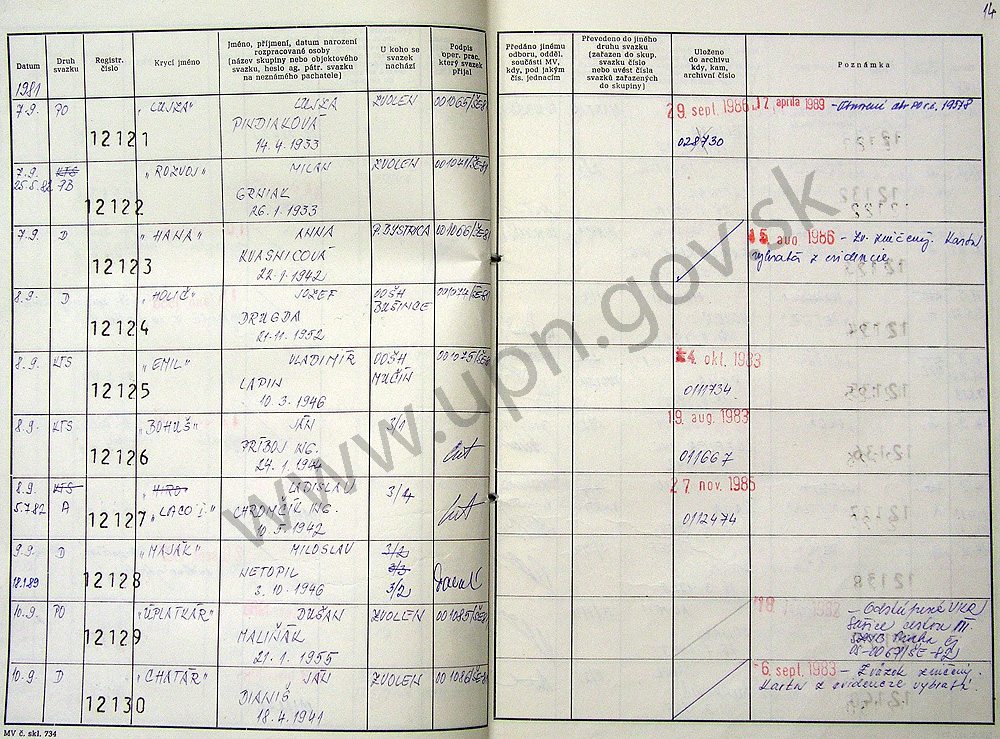 14
Datum
Druh svazku
Registr. číslo
Krycí jméno
Jméno, příjmení, datum narození rozpracované osoby (název skupiny nebo objektového svazku, heslo ag. pátr. svazku na neznámého pachatele)
U koho se svazek nachází
Podpis oper. prac. který svazek přijal
Předáno jinému odboru, odděl. součásti MV, kdy, pod jakým čís. jednacím
Převedeno do jiného druhu svazku (zařazen do skup. svazku číslo nebo uvést čísla svazků zařazených do skupiny)
Uloženo do archivu kdy, kam, archivní číslo
Poznámka
1981
7.9. PO 12121 "LUJZA" LUJZA ZVOLEN 001065/ŠE-81 29. sept. 1986 17. apríla 1989
PINDIAKOVÁ
14.4.1933 028730
7.9. KTS 12122 "ROZVOJ" MILAN ZVOLEN
25.5.82 PB GRNIAK
26.1.1933
7.9. D 12123 "HANA" ANNA B.BYSTRICA 001066/ŠE-81 15. aug 1986 - Zv. zničený. Karta
KVASNICOVÁ vybratá z evidencie
22.1.1942
8.9. D 12124 "HOLIČ" JOZEF OOŠH BUŠINCE
DRUGDA
21.11.1952
8.9. KTS 12125 "EMIL" VLADIMÍR OOŠH MUČÍN 001075/ŠE-81 24. okt. 1983
LAPIN
10.3.1946 0111734
8.9. KTS 12126 "BOHUŠ" JÁN 3/1 19. aug. 1983
PRÍBOJ ING.
24.1.1944 011667
8.9. KTS 12127 LADISLAV 3/4 27 nov. 1985
5.7.82 A "LACO I." CHROMČÍK ING.
10.5.1942 0112474
9.9. D 12128 "MAJÁK" MILOSLAV 3/2
3/3
18.1.89 NETOPIL 3/2
3.10.1946
10.9. PO 12129 "ÚPLATKÁR" DUŠAN ZVOLEN 001085/ŠE-81
MALIŇÁK
21.1.1955
10.9. D 12130 "CHATÁR" JÁN ZVOLEN 001086/ŠE-81 -6. sept. 1983 - Zväzok zničený.
DIANIŠ
18.4.1941
MV č. skl. 734
www.upn.gov.sk